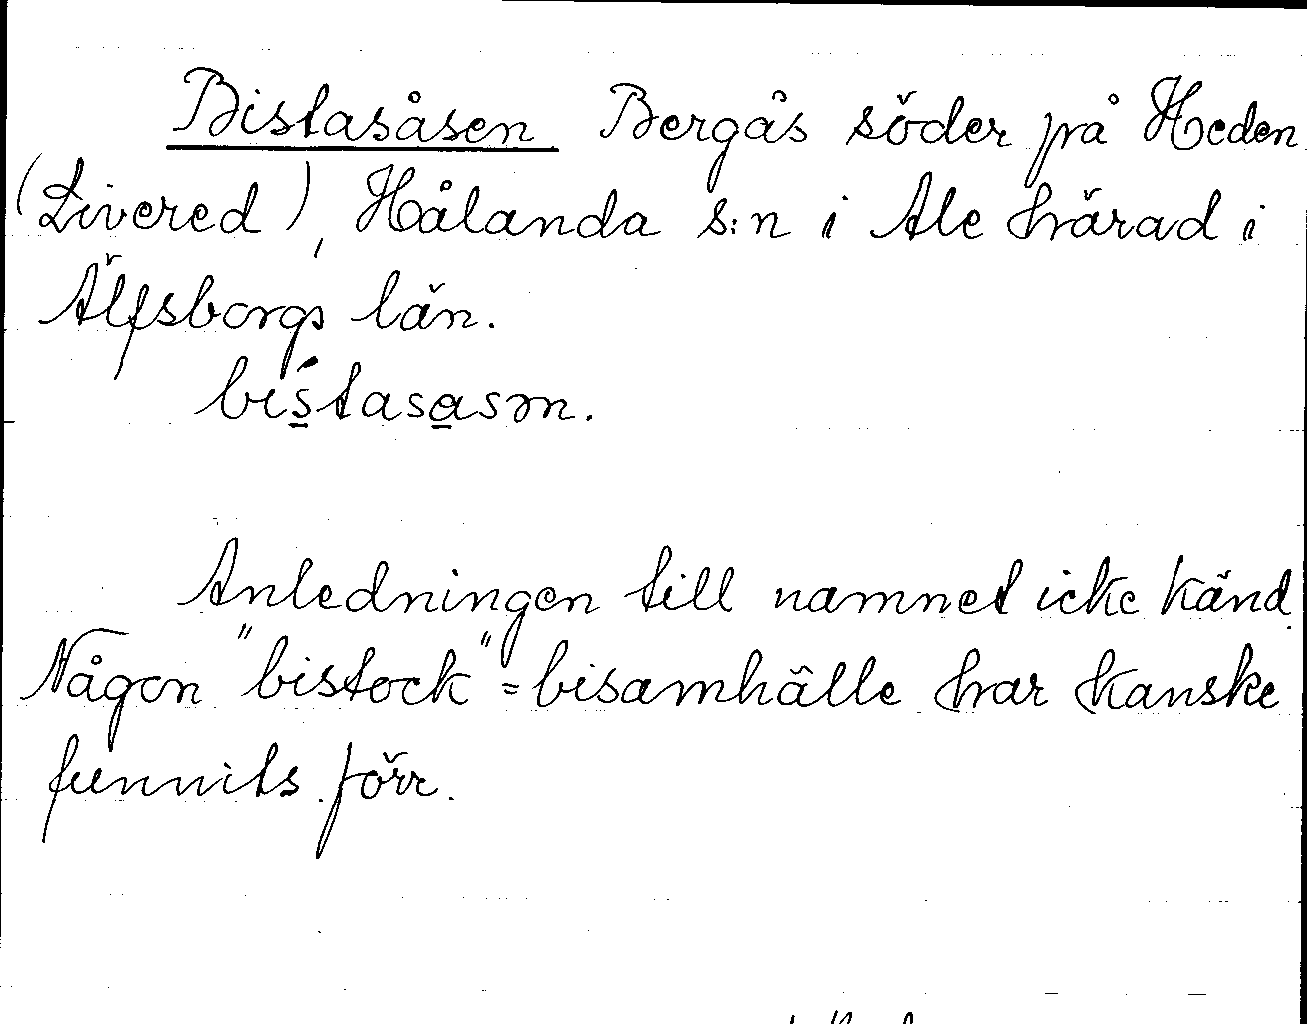 Bistasåsen Bergås söder på Heden
(Livered), Hålanda s:n i Ale härad i
Älfsborgs län.
bístasasən.
Anledningen till namnet icke känd.
Någon "bistock" = bisamhälle har kanske
funnits förr.